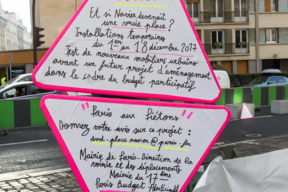 Et si Navier devenait
une vraie place ?
Installations temporaires
du 1er au 18 décembre 2017
Test de nouveaux mobiliers urbains
avant un futur projet d'aménagement
dans le cadre du budget participatif
"Paris aux piétons"
Donnez votre avis sur ce projet :
Mairie de Paris - Direction de la
voirie et des déplacements
Mairie du 17
Paris Budget Participatif